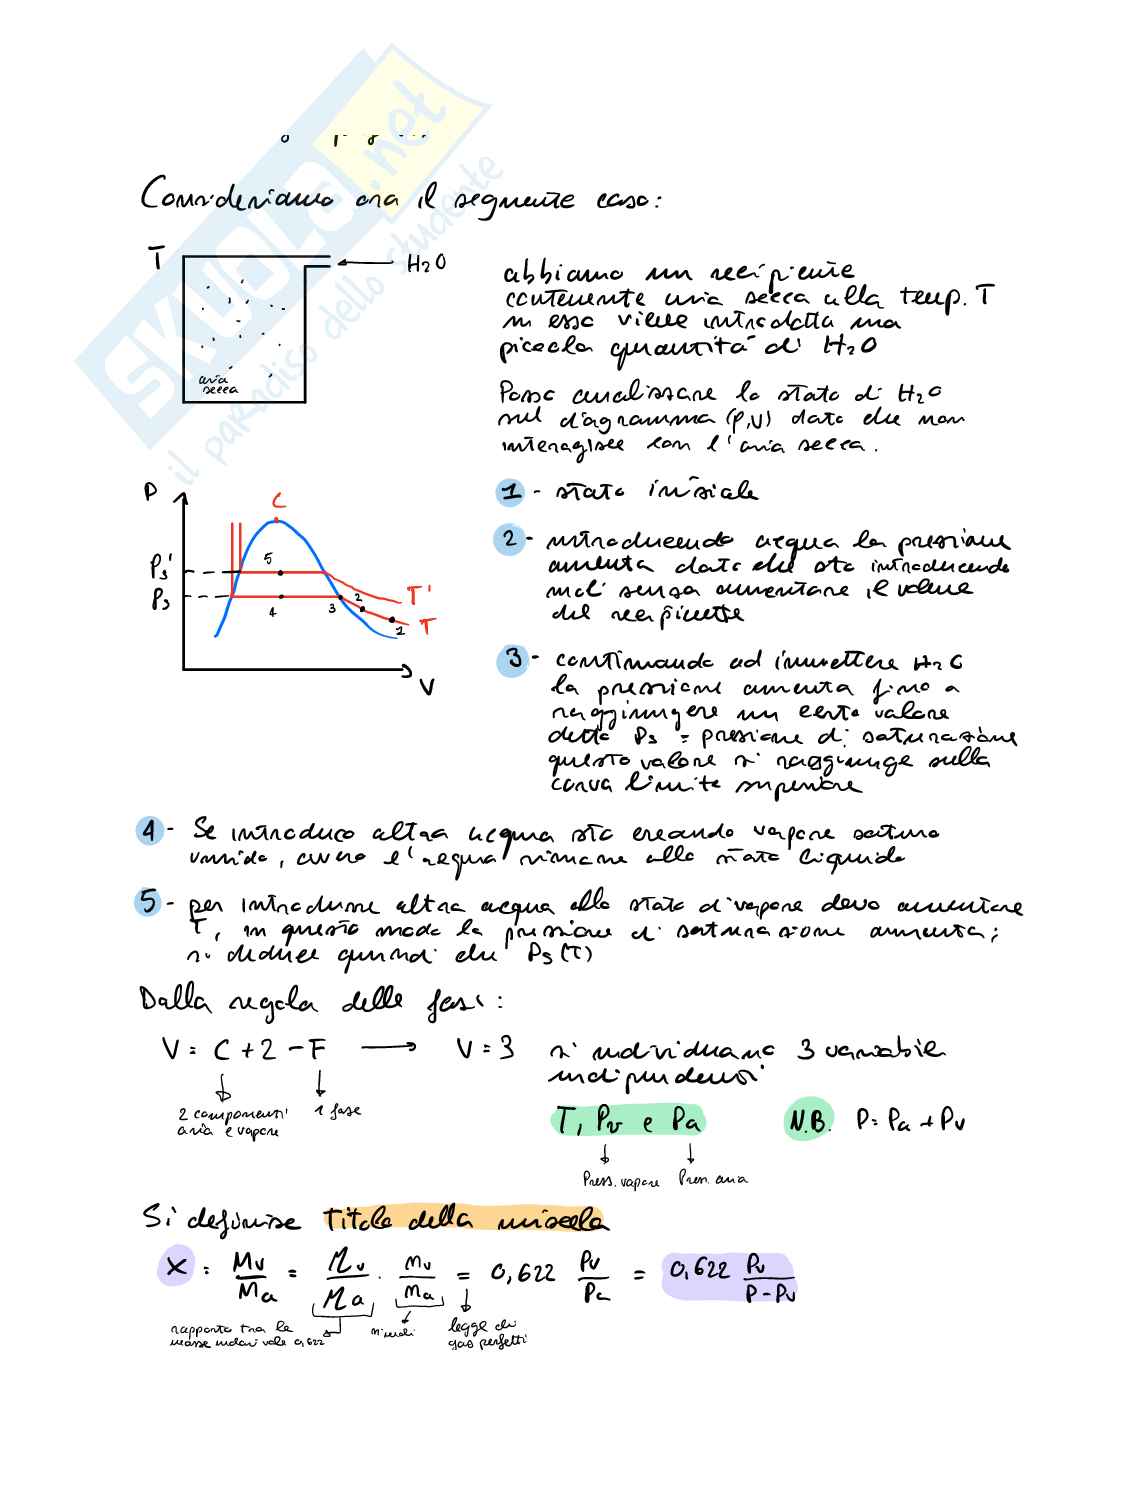 Consideriamo ora il seguente caso:
T
H2O
aria
secca
abbiamo un recipiente
contenente aria secca alla temp. T
in esso viene introdotta una
piccola quantità di H2O
Posso analizzare lo stato di H2O
sul diagramma (p,V) dato che non
interagisce con l'aria secca.
P
C
Ps'
Ps
5
4
3
2
1
T'
T
V
1 - stato iniziale
2 - introducendo acqua la pressione
aumenta dato che sto introducendo
moli senza aumentare il volume
del recipiente
3 - continuando ad immettere H2O
la pressione aumenta fino a
raggiungere un certo valore
detto Ps = pressione di saturazione
questo valore si raggiunge sulla
curva limite superiore
4 - Se introduco altra acqua sto creando vapore saturo
umido, ovvero l'acqua rimane allo stato liquido
5 - per introdurre altra acqua allo stato di vapore devo aumentare
T, in questo modo la pressione di saturazione aumenta;
si deduce quindi che Ps(T)
Dalla regola delle fasi:
V = C + 2 - F → V = 3 si individuano 3 variabili
indipendenti
2 componenti
aria e vapore
1 fase
T, Pv e Pa
N.B. P = Pa + Pv
Press. vapore
Press. aria
Si definisce titolo della miscela
X = Mv/Ma = Mv/Ma · mv/ma = 0,622 Pv/Pa = 0,622 Pv/P-Pv
rapporto tra le
masse molari vale 0,622
n moli
legge di
gas perfetti
SKUOLA.net
il paradiso dello studente